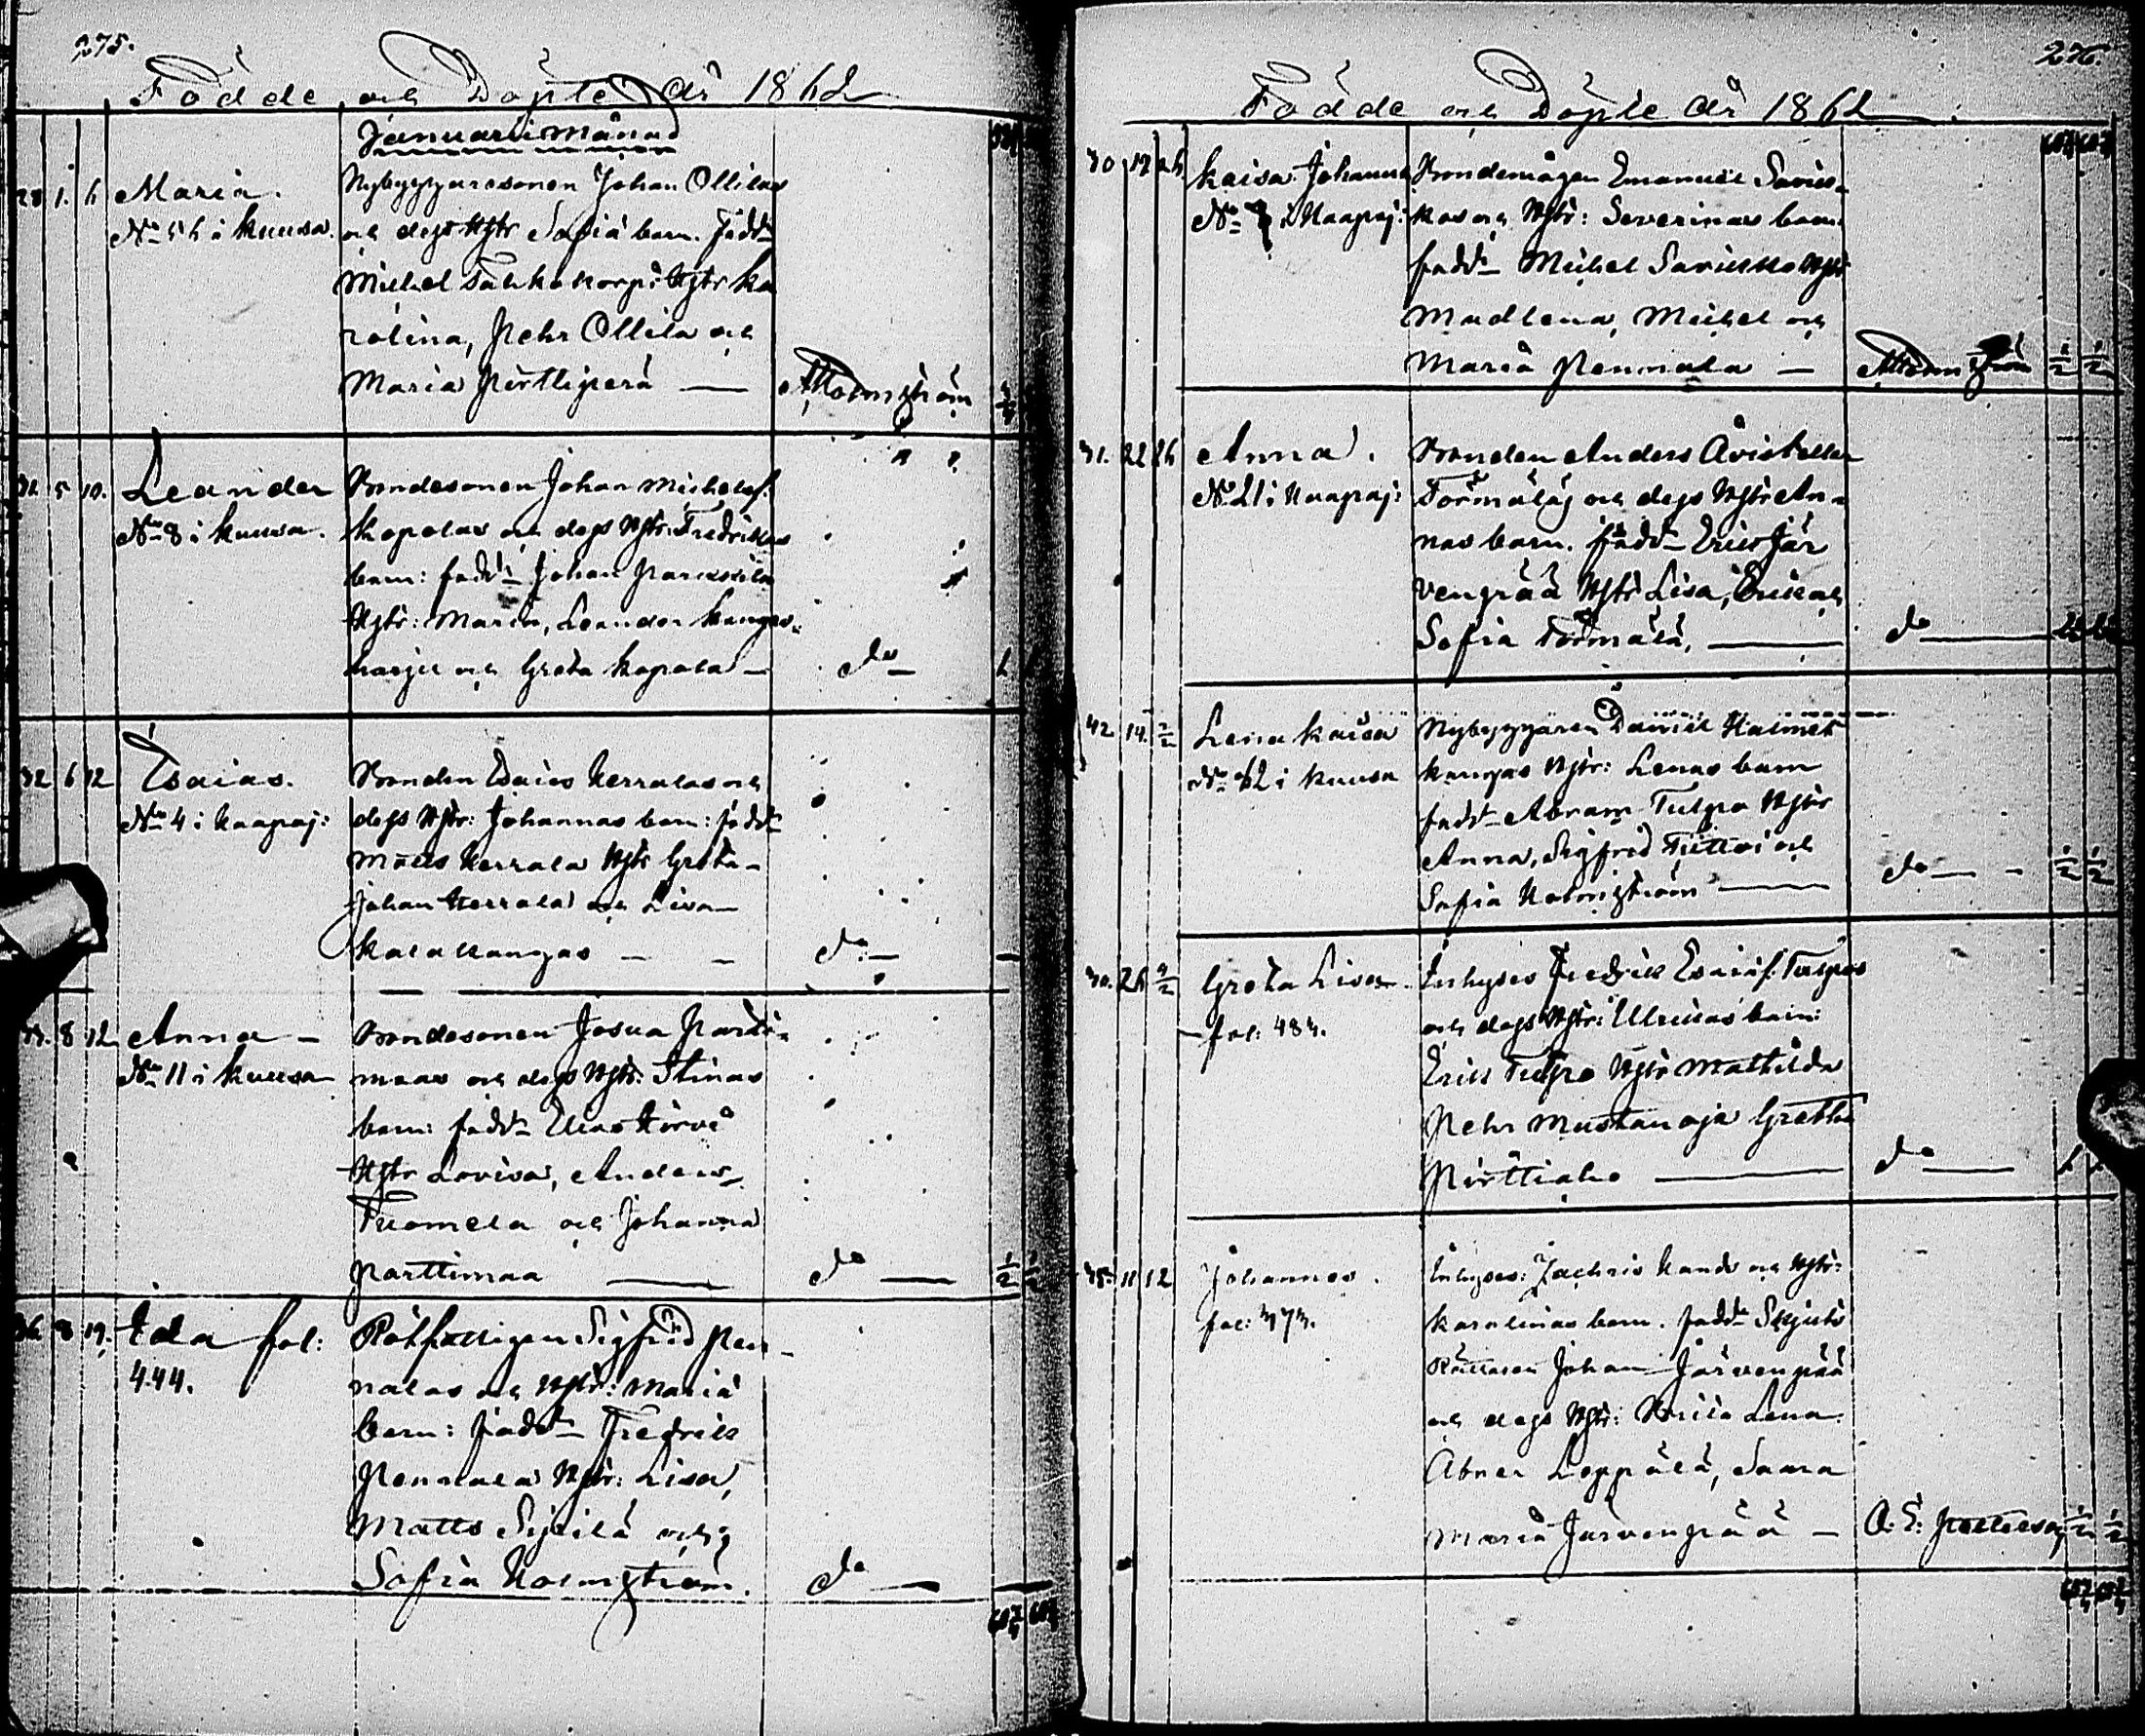 275.
Födde och Döpte år 1862
Januari månad
28 1. 6 Maria.
No 56 i Kuusa.
Nybyggaresonen Johan Ollilas
och dess Hstr Sofia barn. fadd:
Michel Hstr Ka
rolina, Pehr Ollila och
Maria Pirttiperä —
Holmström
5 10. Leander
No 8 i Kuusa.
Bondesonen Johan Michelsf.
Kopolas och dess Hstr: Fredrikas
barn: fadd: Johan
Hstr: Maria, Leander Kangas-
harju och Greta Kopola —
do —
32 6 12 Esaias.
No 4 i Haapaj:
Bonden Esaias Kerralas och
dess Hstr: Johannas barn: fadd:
Matts Kerrala Hstr Greta
Johan Kerrala och Lisa
Kalakangas — —
do —
8 12 Anna —
No 11 i Kuusa
Bondesonen Josua Partti-
maas och dess Hstr: Stinas
barn: fadd: Elias Järvi
Hstr Lovisa, Anders
Tuomela och Johanna
Parttimaa —
do — ½ ½
8 19. Ida fol:
444.
Rotfattigen Sigfrid Pen-
nalas och Hstr: Maria
barn: fadd: Fredrik
Pennala Hstr: Lisa,
Matts Sipilä och
Sofia Holmström.
do —
276.
Födde och Döpte år 1862
30 17 26 Kaisa Johanna
No i Haapaj:
Bondemågen Emanuel Savus-
kas och Hstr: Severinas barn.
fadd: Michel Hstr
Madlena, Michel och
Maria Pennala —
Holmström ½ ½
31. 22 26 Anna.
No 21 i Haapaj:
Bonden Anders
Törmälä och dess Hstr An-
nas barn. fadd: Eric Jär
venpää Hstr Lisa, Eric och
Sofia Törmälä, —
do —
42 14. 2/2 Lena Kaisa
No 62 i Kuusa
Nybyggaren Daniel Halmet
kangas Hstr: Lenas barn
fadd: Abram Tulpo Hstr
Anna, Sigfrid och
Sofia Holmström —
do — - ½ ½
30. 26 Greta Lisa.
fol: 484.
Inhyses Fredrik Esaiæf. Tulpos
och dess Hstr: Ulrikas barn:
Erik Tulpo Hstr Mathilda
Pehr Mustanoja Gretha
Pirttiaho —
do —
35 11 12 Johannes.
fol: 373.
Inhyses: Zachris Kands och Hstr:
Karolinas barn. fadd: Skjuts
Rättaren Johan Järvenpää
och dess Hstr: Brita Lena
Abner Leppälä, Saara
Maria Järvenpää —
½ ½